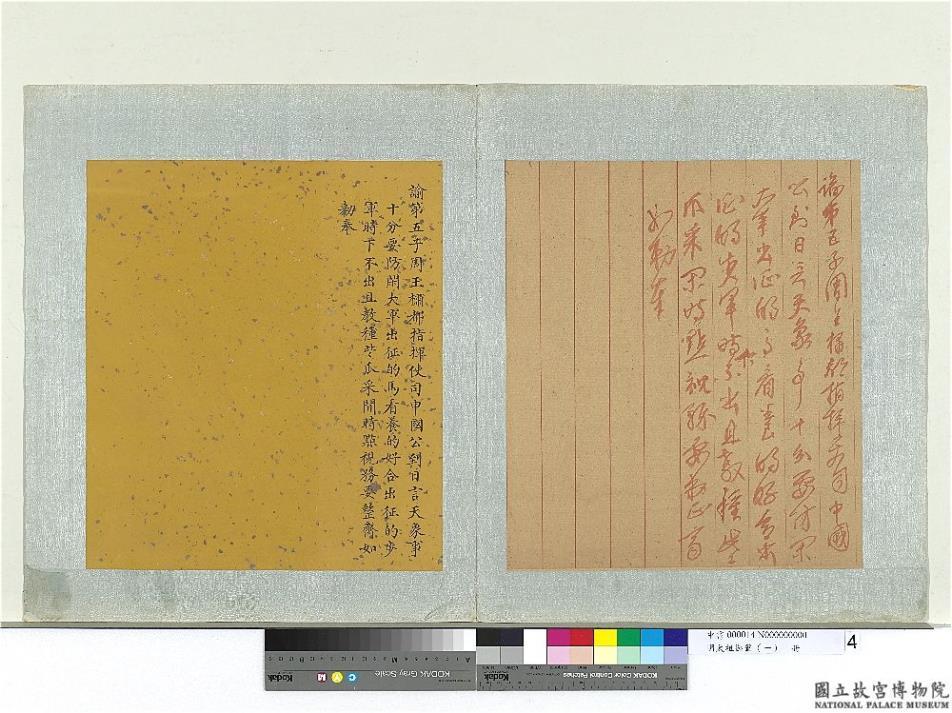 諭第五子周王橚都指揮使司中國
公到日言天象事十分要防閑
大軍出征的馬看養的好合出
征的步軍時下不出且教種些
瓜菜閑時點視務要整齊
如勅奉
諭第五子周王橚都指揮使司中國公到日言天象事
十分要防閑大軍出征的馬看養的好合出征的步
軍時下不出且教種些瓜采閒時點視務要整齊如
勅奉
KODAK Gray Scale
Kodak
KODAK Color Control Patches
4
國立故宮博物院
NATIONAL PALACE MUSEUM